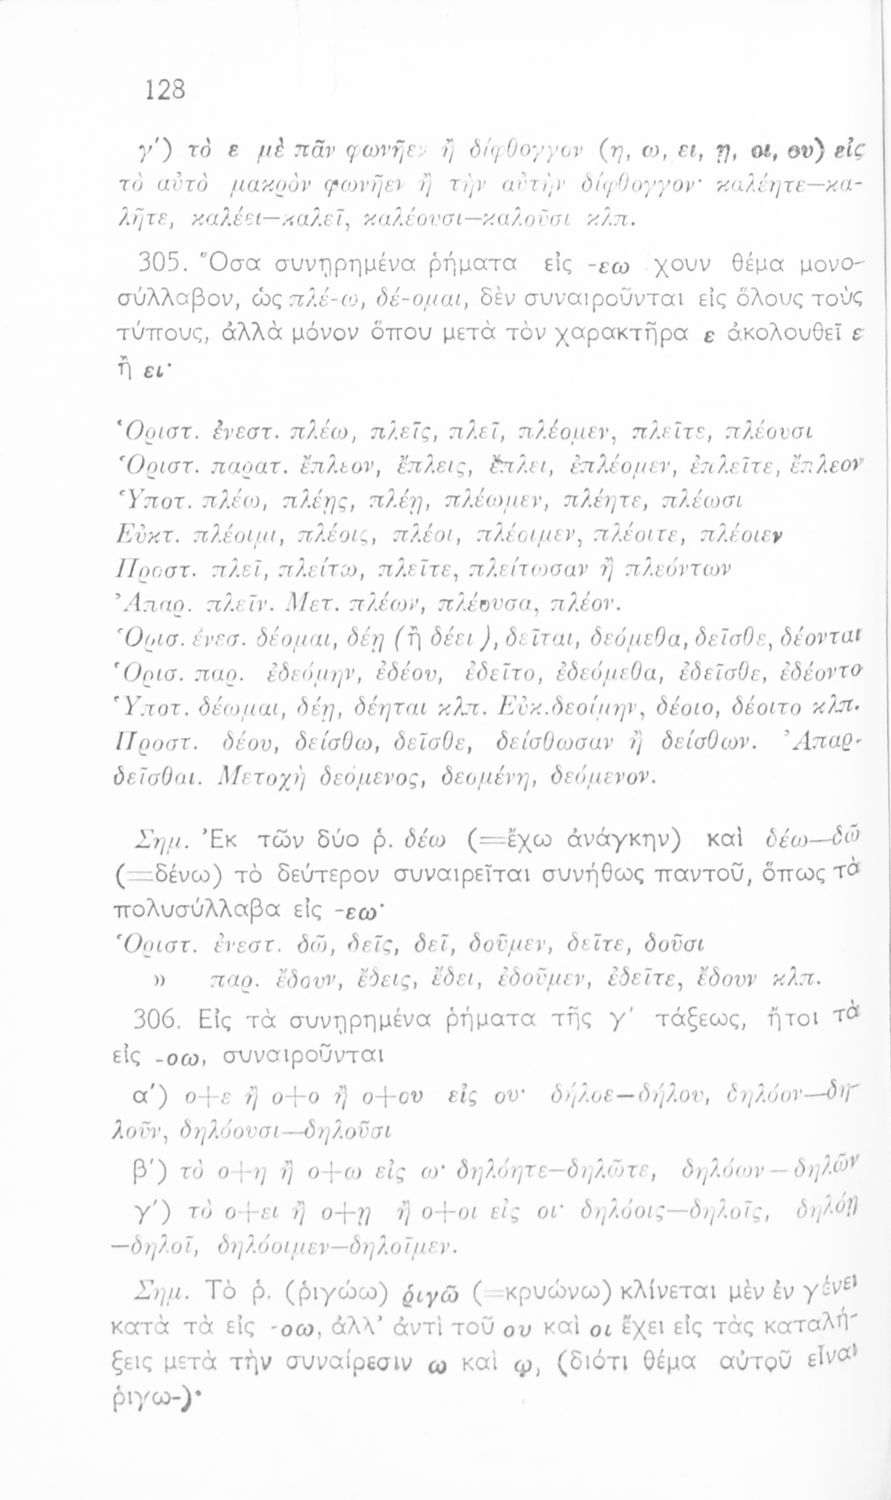 128
γ') τὸ ε μὲ πᾶν φωνῆεν ἢ δίφθογγον (η, ω, ει, ῃ, οι, ου) εἰς
τὸ αὐτὸ μακρὸν φωνῆεν ἢ τὴν αὐτὴν δίφθογγον· καλέητε—κα-
λῆτε, καλέει—καλεῖ, καλέουσι—καλοῦσι κλπ.
305. Ὅσα συνῃρημένα ῥήματα εἰς -εω χουν θέμα μονο-
σύλλαβον, ὡς πλέ-ω, δέ-ομαι, δὲν συναιροῦνται εἰς ὅλους τοὺς
τύπους, ἀλλὰ μόνον ὅπου μετὰ τὸν χαρακτῆρα ε ἀκολουθεῖ ε
ἢ ει·
Ὁριστ. ἐνεστ. πλέω, πλεῖς, πλεῖ, πλέομεν, πλεῖτε, πλέουσι
Ὁριστ. παρατ. ἔπλεον, ἔπλεις, ἔπλει, ἐπλέομεν, ἐπλεῖτε, ἔπλεον
Ὑποτ. πλέω, πλέῃς, πλέῃ, πλέωμεν, πλέητε, πλέωσι
Εὐκτ. πλέοιμι, πλέοις, πλέοι, πλέοιμεν, πλέοιτε, πλέοιεν
Προστ. πλεῖ, πλείτω, πλεῖτε, πλείτωσαν ἢ πλεόντων
Ἀπαρ. πλεῖν. Μετ. πλέων, πλέουσα, πλέον.
Ὁρισ. ἐνεσ. δέομαι, δέῃ (ἢ δέει ), δεῖται, δεόμεθα, δεῖσθε, δέονται
Ὁρισ. παρ. ἐδεόμην, ἐδέου, ἐδεῖτο, ἐδεόμεθα, ἐδεῖσθε, ἐδέοντο
Ὑποτ. δέωμαι, δέῃ, δέηται κλπ. Εὐκ.δεοίμην, δέοιο, δέοιτο κλπ.
Προστ. δέου, δείσθω, δεῖσθε, δείσθωσαν ἢ δείσθων. Ἀπαρ.
δεῖσθαι. Μετοχὴ δεόμενος, δεομένη, δεόμενον.
Σημ. Ἐκ τῶν δύο ῥ. δέω (=ἔχω ἀνάγκην) καὶ δέω—δῶ
(=δένω) τὸ δεύτερον συναιρεῖται συνήθως παντοῦ, ὅπως τὰ
πολυσύλλαβα εἰς -εω·
Ὁριστ. ἐνεστ. δῶ, δεῖς, δεῖ, δοῦμεν, δεῖτε, δοῦσι
» παρ. ἔδουν, ἔδεις, ἔδει, ἐδοῦμεν, ἐδεῖτε, ἔδουν κλπ.
306. Εἰς τὰ συνῃρημένα ῥήματα τῆς γ' τάξεως, ἤτοι τὰ
εἰς -οω, συναιροῦνται
α') ο+ε ἢ ο+ο ἢ ο+ου εἰς ου· δήλοε—δήλου, δηλόον—δη-
λοῦν, δηλόουσι—δηλοῦσι
β') τὸ ο+η ἢ ο+ω εἰς ω· δηλόητε—δηλῶτε, δηλόων—δηλῶν
γ') τὸ ο+ει ἢ ο+ῃ ἢ ο+οι εἰς οι· δηλόοις—δηλοῖς, δηλόῃ
—δηλοῖ, δηλόοιμεν—δηλοῖμεν.
Σημ. Τὸ ῥ. (ῥιγώω) ῥιγῶ (=κρυώνω) κλίνεται μὲν ἐν γένει
κατὰ τὰ εἰς -οω, ἀλλ' ἀντὶ τοῦ ου καὶ οι ἔχει εἰς τὰς καταλή-
ξεις μετὰ τὴν συναίρεσιν ω καὶ ῳ, (διότι θέμα αὐτοῦ εἶναι
ῥιγω-)·